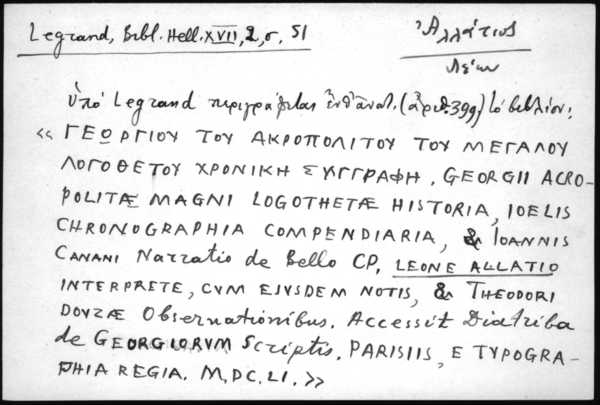 Legrand, Bibl. Hell. XVII, 2, σ. 51
Ἀλλάτιος
Λέων
Ὑπὸ Legrand περιγράφεται ἐνθ' ἀνωτ. (ἀριθ. 399) τὸ βιβλίον:
« ΓΕΩΡΓΙΟΥ ΤΟΥ ΑΚΡΟΠΟΛΙΤΟΥ ΤΟΥ ΜΕΓΑΛΟΥ
ΛΟΓΟΘΕΤΟΥ ΧΡΟΝΙΚΗ ΣΥΓΓΡΑΦΗ. GEORGII ACRO-
POLITÆ MAGNI LOGOTHETÆ HISTORIA, IOELIS
CHRONOGRAPHIA COMPENDIARIA, & IOANNIS
CANANI Narratio de Bello CP, LEONE ALLATIO
INTERPRETE, CVM EJVSDEM NOTIS, & THEODORI
DOVZÆ Observationibus. Accessit Diatriba
de GEORGIORVM Scriptis. PARISIIS, E TYPOGRA-
PHIA REGIA. M,DC.LI. »